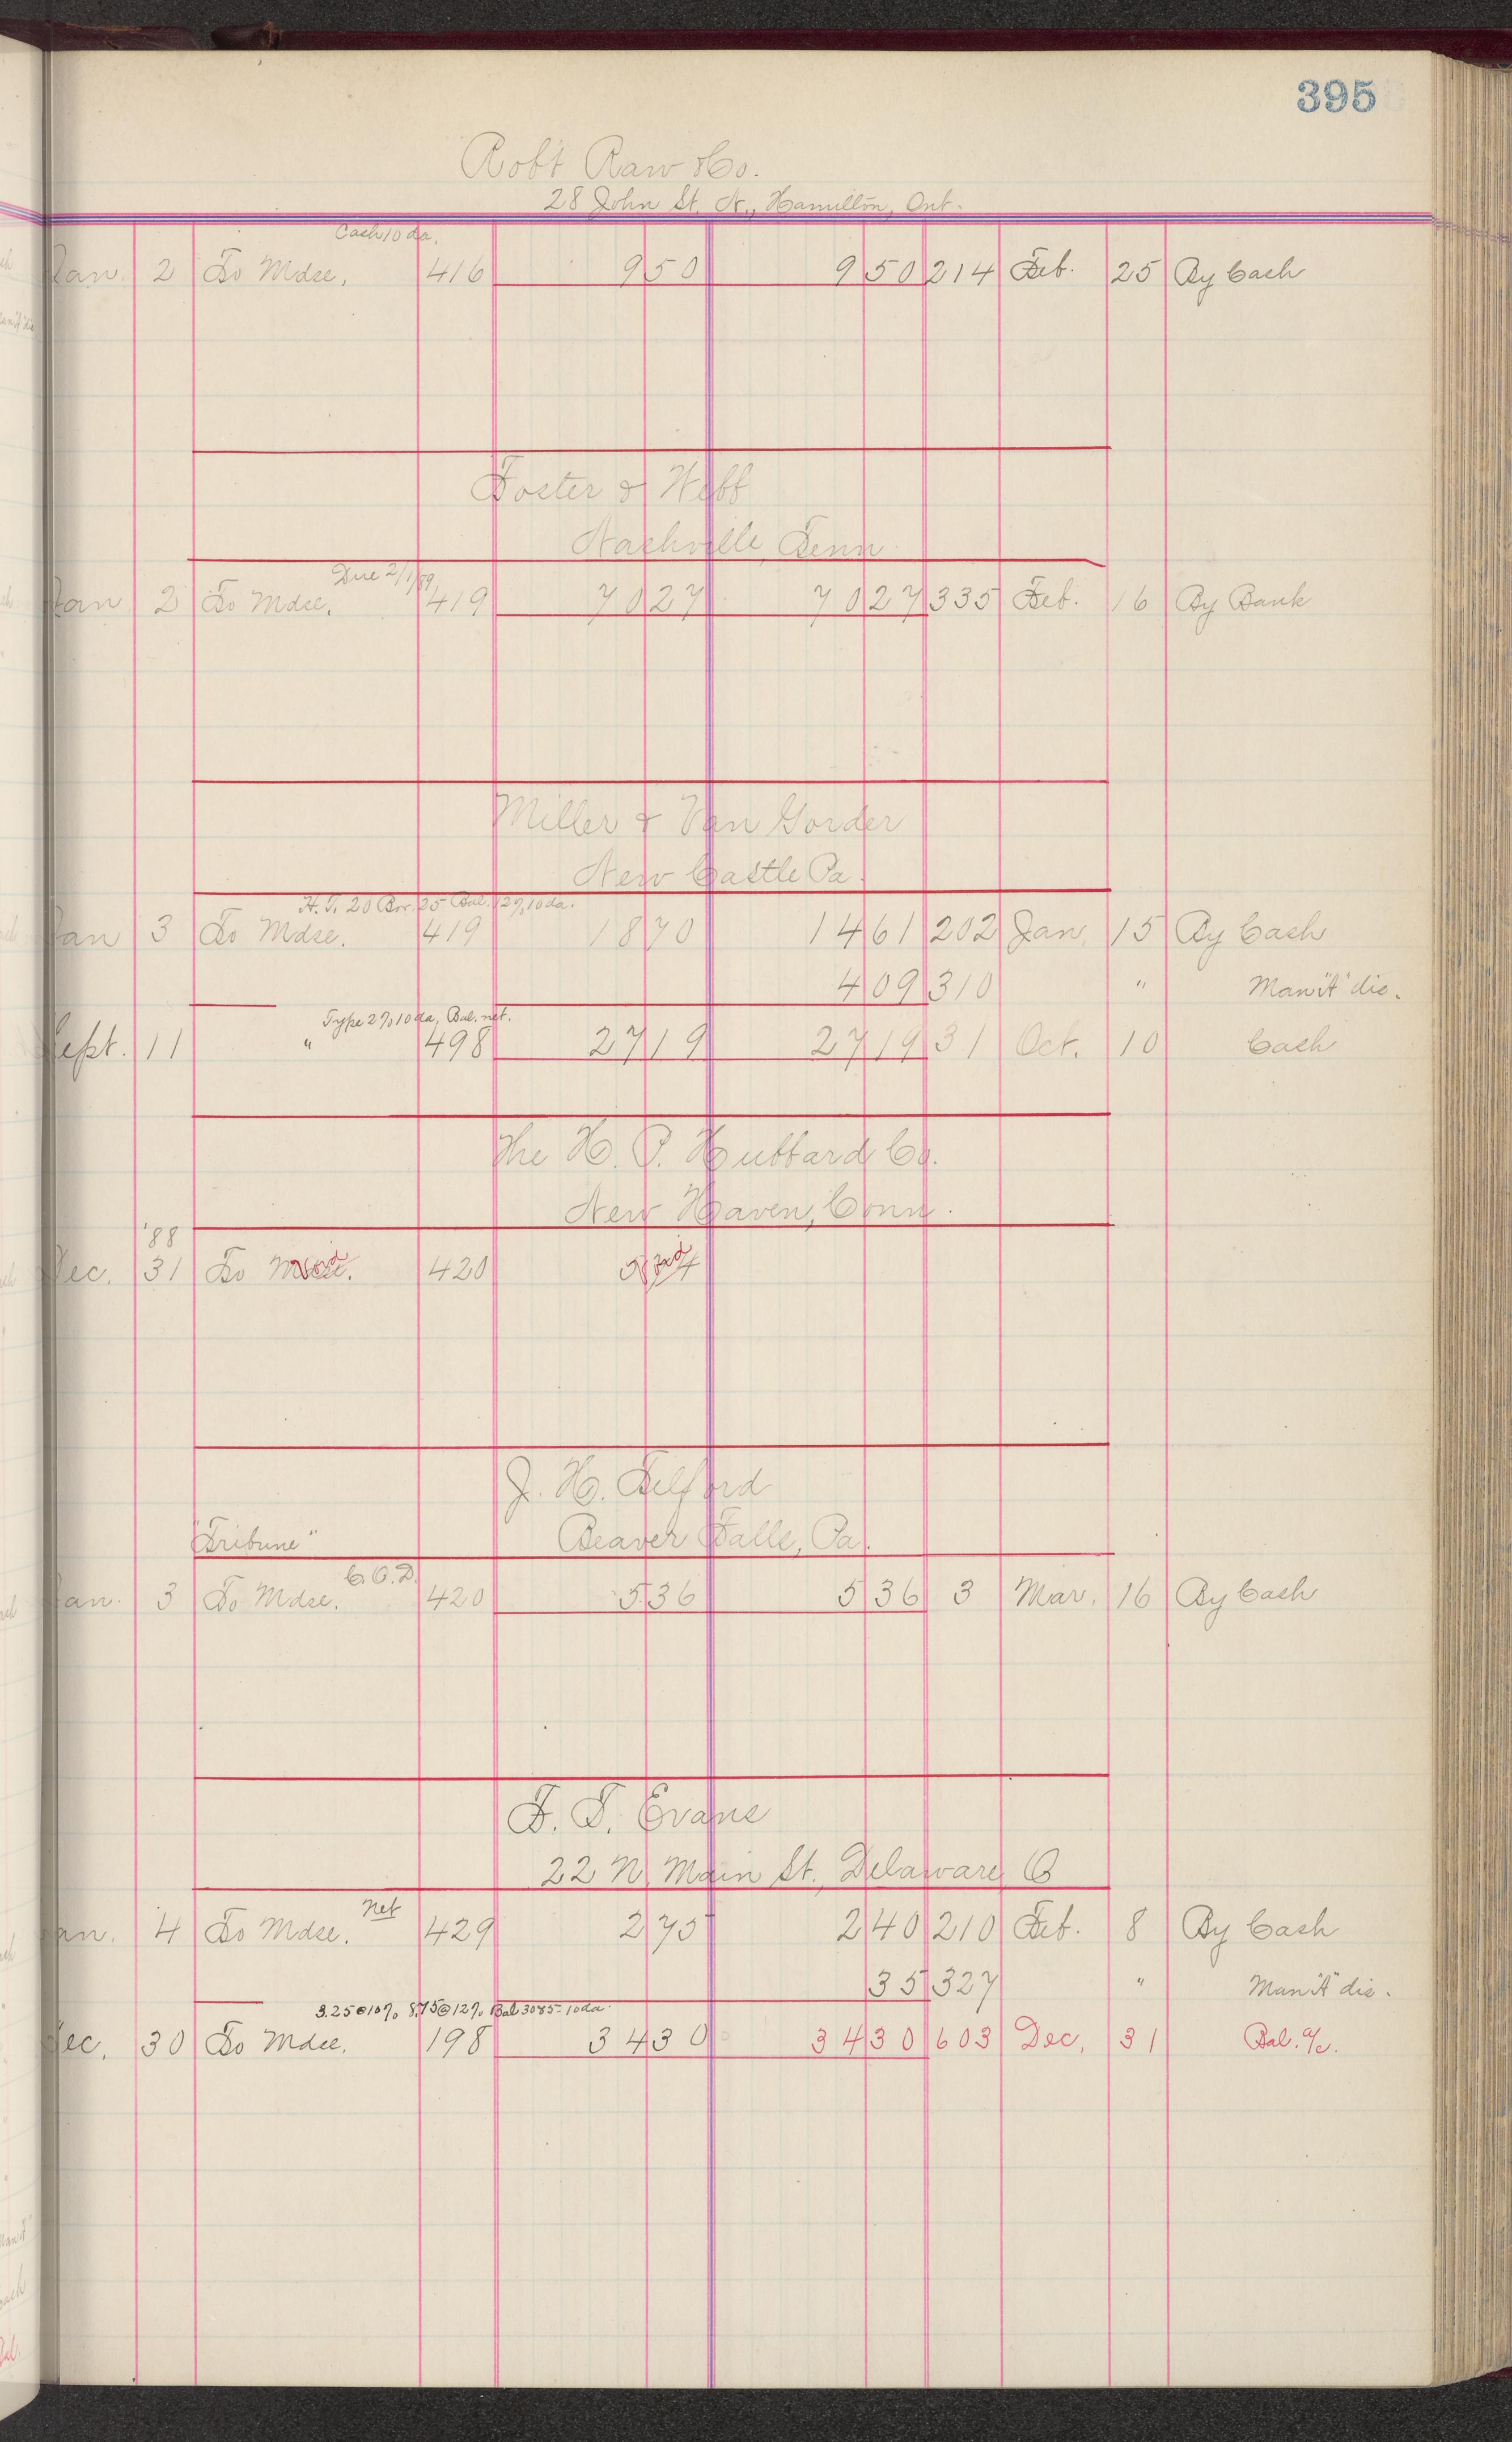 395
Robt Raw & Co.
28 John St. N., Hamilton, Ont.
Cash 10 da.
Jan. 2 To Mdse. 416 9 50 9 50 214 Feb. 25 By Cash
Foster & Webb
Nashville, Tenn
Due 2/1/89
Jan 2 To Mdse. 419 70 27 70 27 335 Feb. 16 By Bank
Miller & Van Gorder
New Castle Pa.
H.T. 20 Bor. 25 Bal. 12% 10 da.
Jan 3 To Mdse. 419 18 70 14 61 202 Jan. 15 By Cash
4 09 310 " Man'f't dis.
Type 2% 10 da, Bal. net.
Sept. 11 " 498 27 19 27 19 31 Oct. 10 Cash
The H. P. Hubbard Co.
New Haven, Conn.
'88
Dec. 31 To Mdse. 420
J. H. Telford
"Tribune" Beaver Falls, Pa.
C.O.D.
Jan. 3 To Mdse. 420 5 36 5 36 3 Mar. 16 By Cash
F. T. Evans
22 N. Main St., Delaware, O
Net
Jan. 4 To Mdse. 429 2 75 2 40 210 Feb. 8 By Cash
35 327 " Man'f't dis.
3.25@10% 8.75@12% Bal 30 85- 10 da.
Dec. 30 To Mdse. 198 34 30 34 30 603 Dec. 31 Bal. a/c.